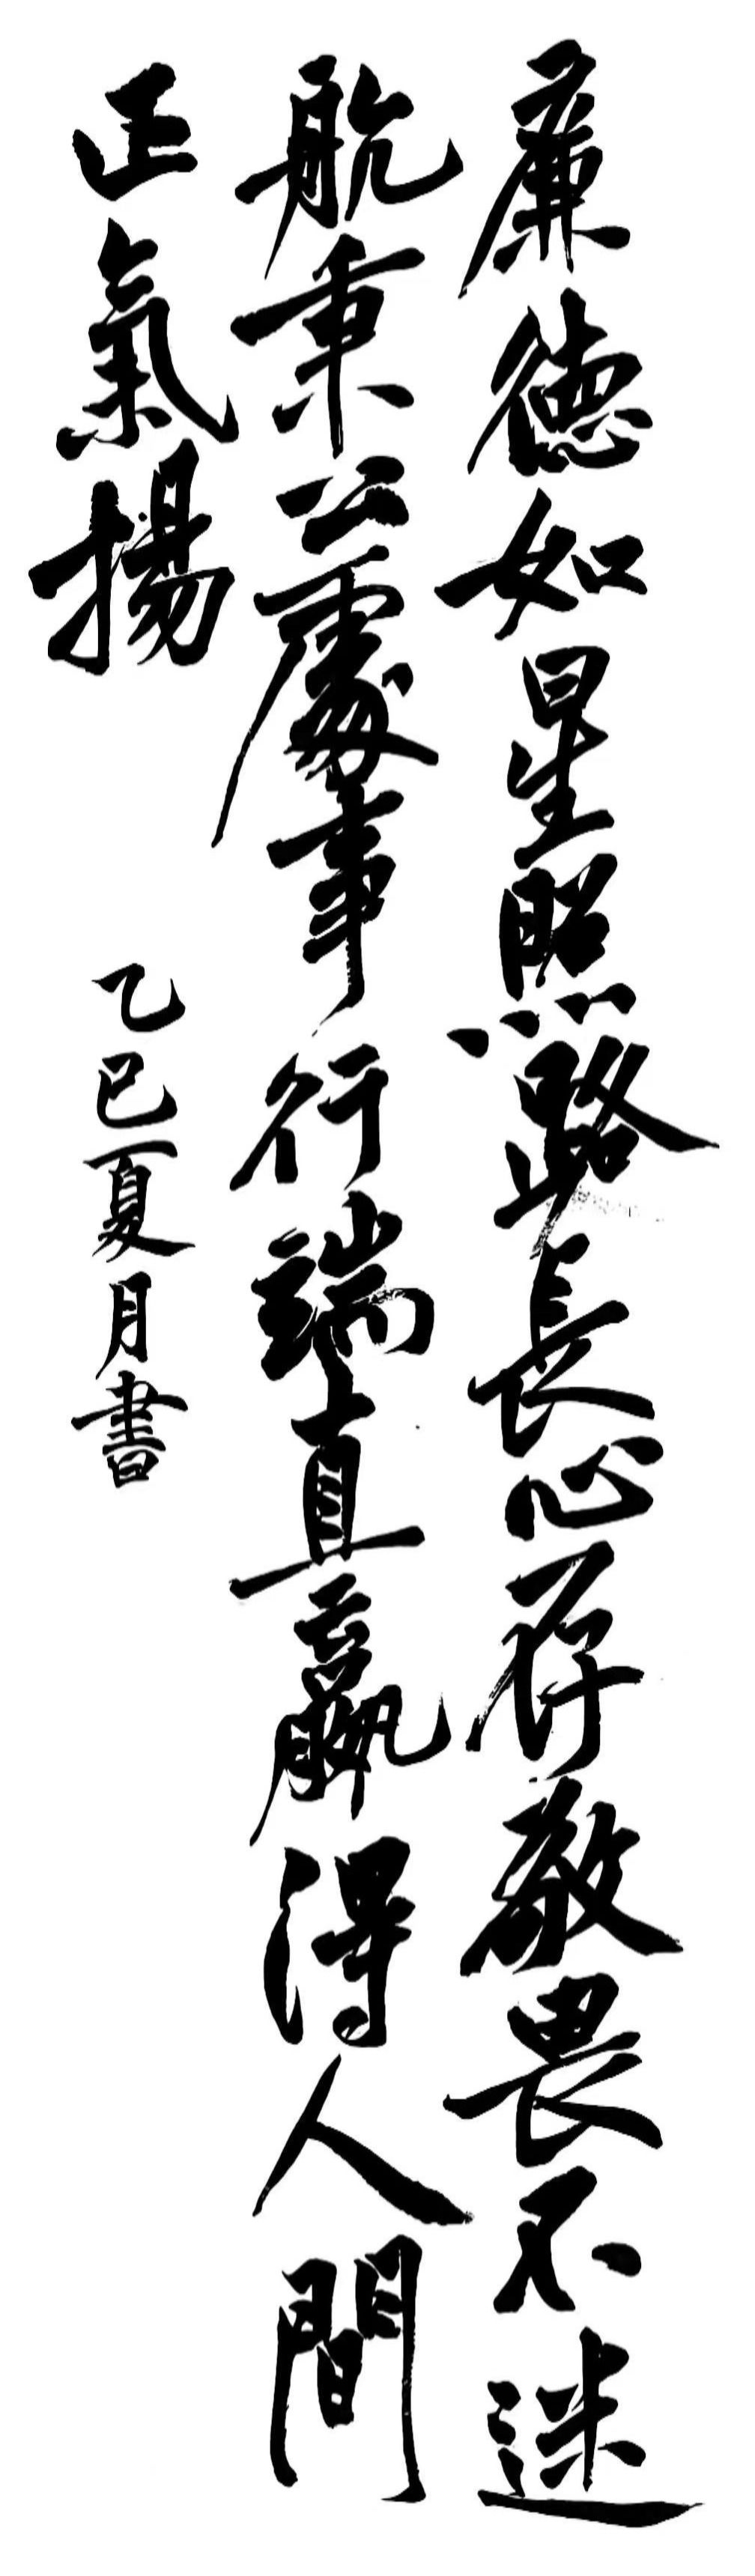 廉德如星照路長心存敬畏不迷
航秉公處事行端直贏得人間
正氣揚
乙巳夏月書